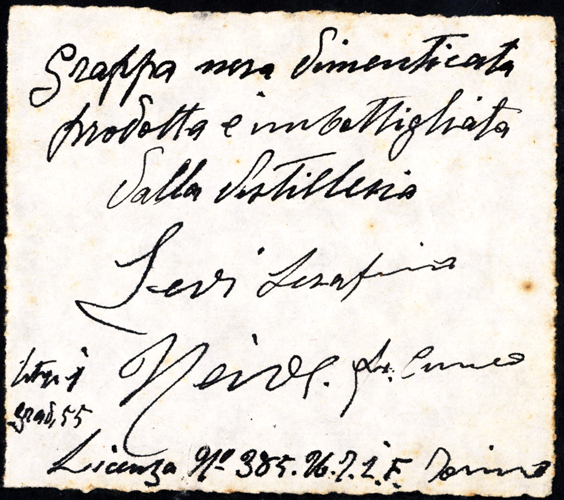 Grappa nera dimenticata
prodotta e imbottigliata
dalla distilleria
Levi Serafino
Neive. Pr. Cuneo
litri 1
grad. 55
Licenza Nº 385. U.T.I.F. Torino